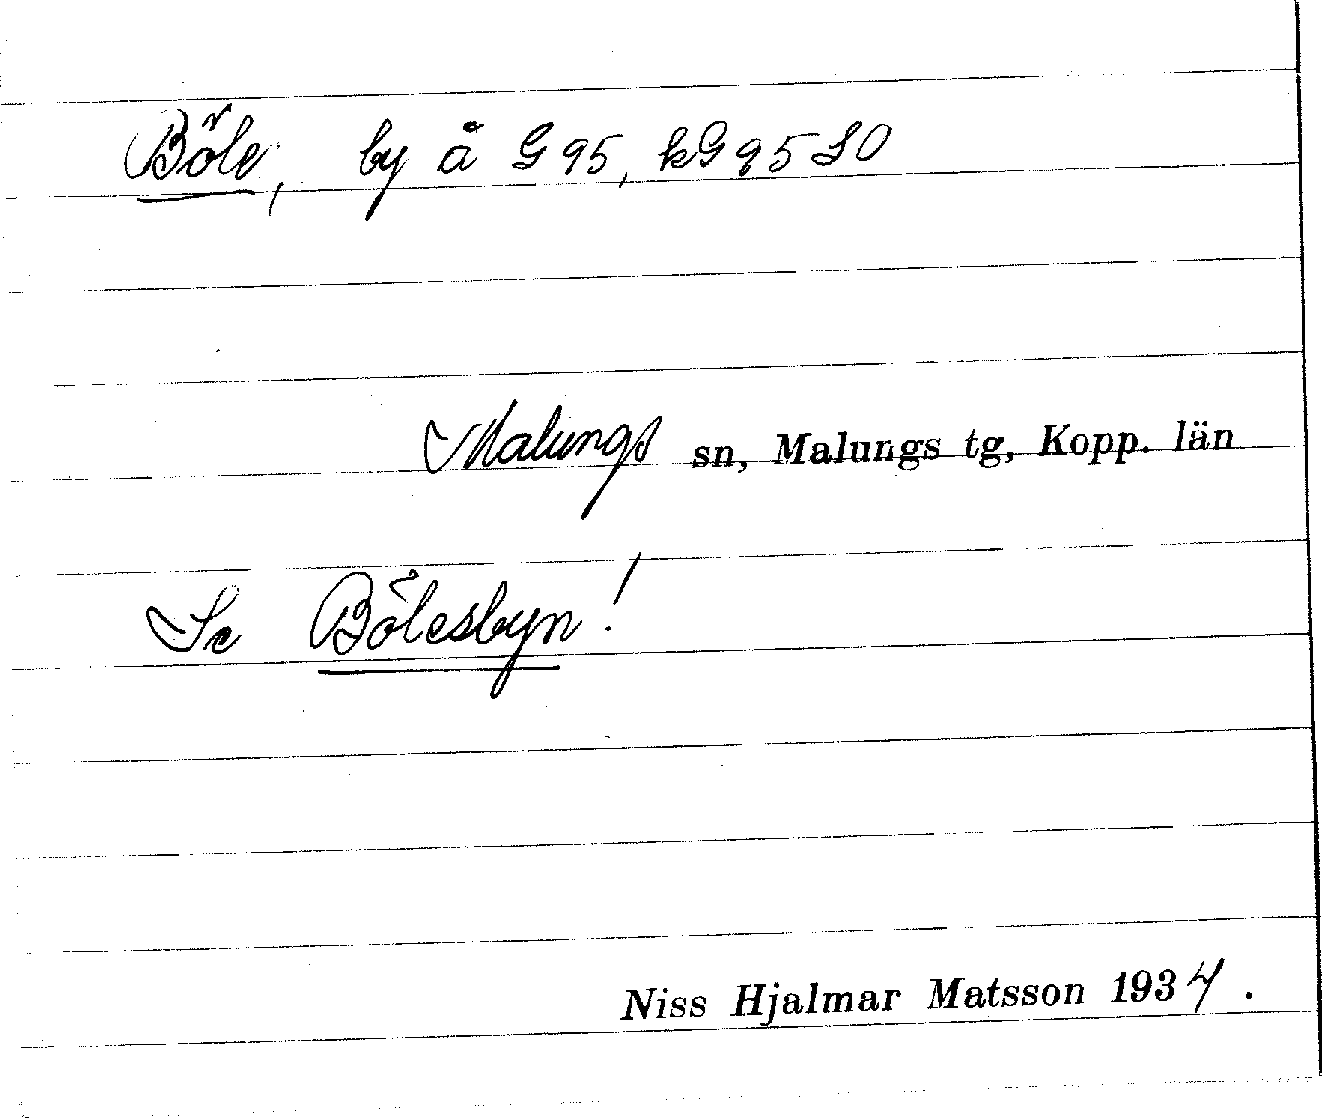 Böle, by å G 95, kG 95 SO
Malungs sn, Malungs tg, Kopp. län
Se Bölesbyn!
Niss Hjalmar Matsson 1934.